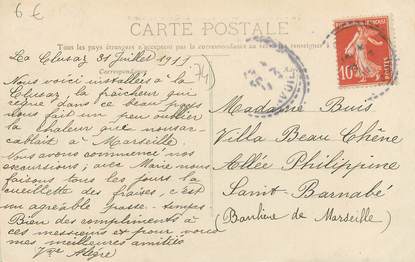 6 €
CARTE POSTALE
Tous les pays étrangers n'acceptent pas la correspondance au
Correspondance
La Clusaz 31 Juillet 1911
74
Nous voici installés à la
Clusaz, la fraîcheur qui
règne dans ce beau pays
nous fait un peu oublier
la chaleur que nous
cablait à Marseille.
Nous avons commencé nos
excursions, avec Marie nous
faisons tous les jours la
cueillette des fraises, c'est
un agréable passe-temps
Bien des compliments à
ces messieurs et pour vous
mes meilleures amitiés
Vve Alègre
10
Madame Buis
Villa Beau Chêne
Allée Philippine
Saint-Barnabé
(Banlieue de Marseille)